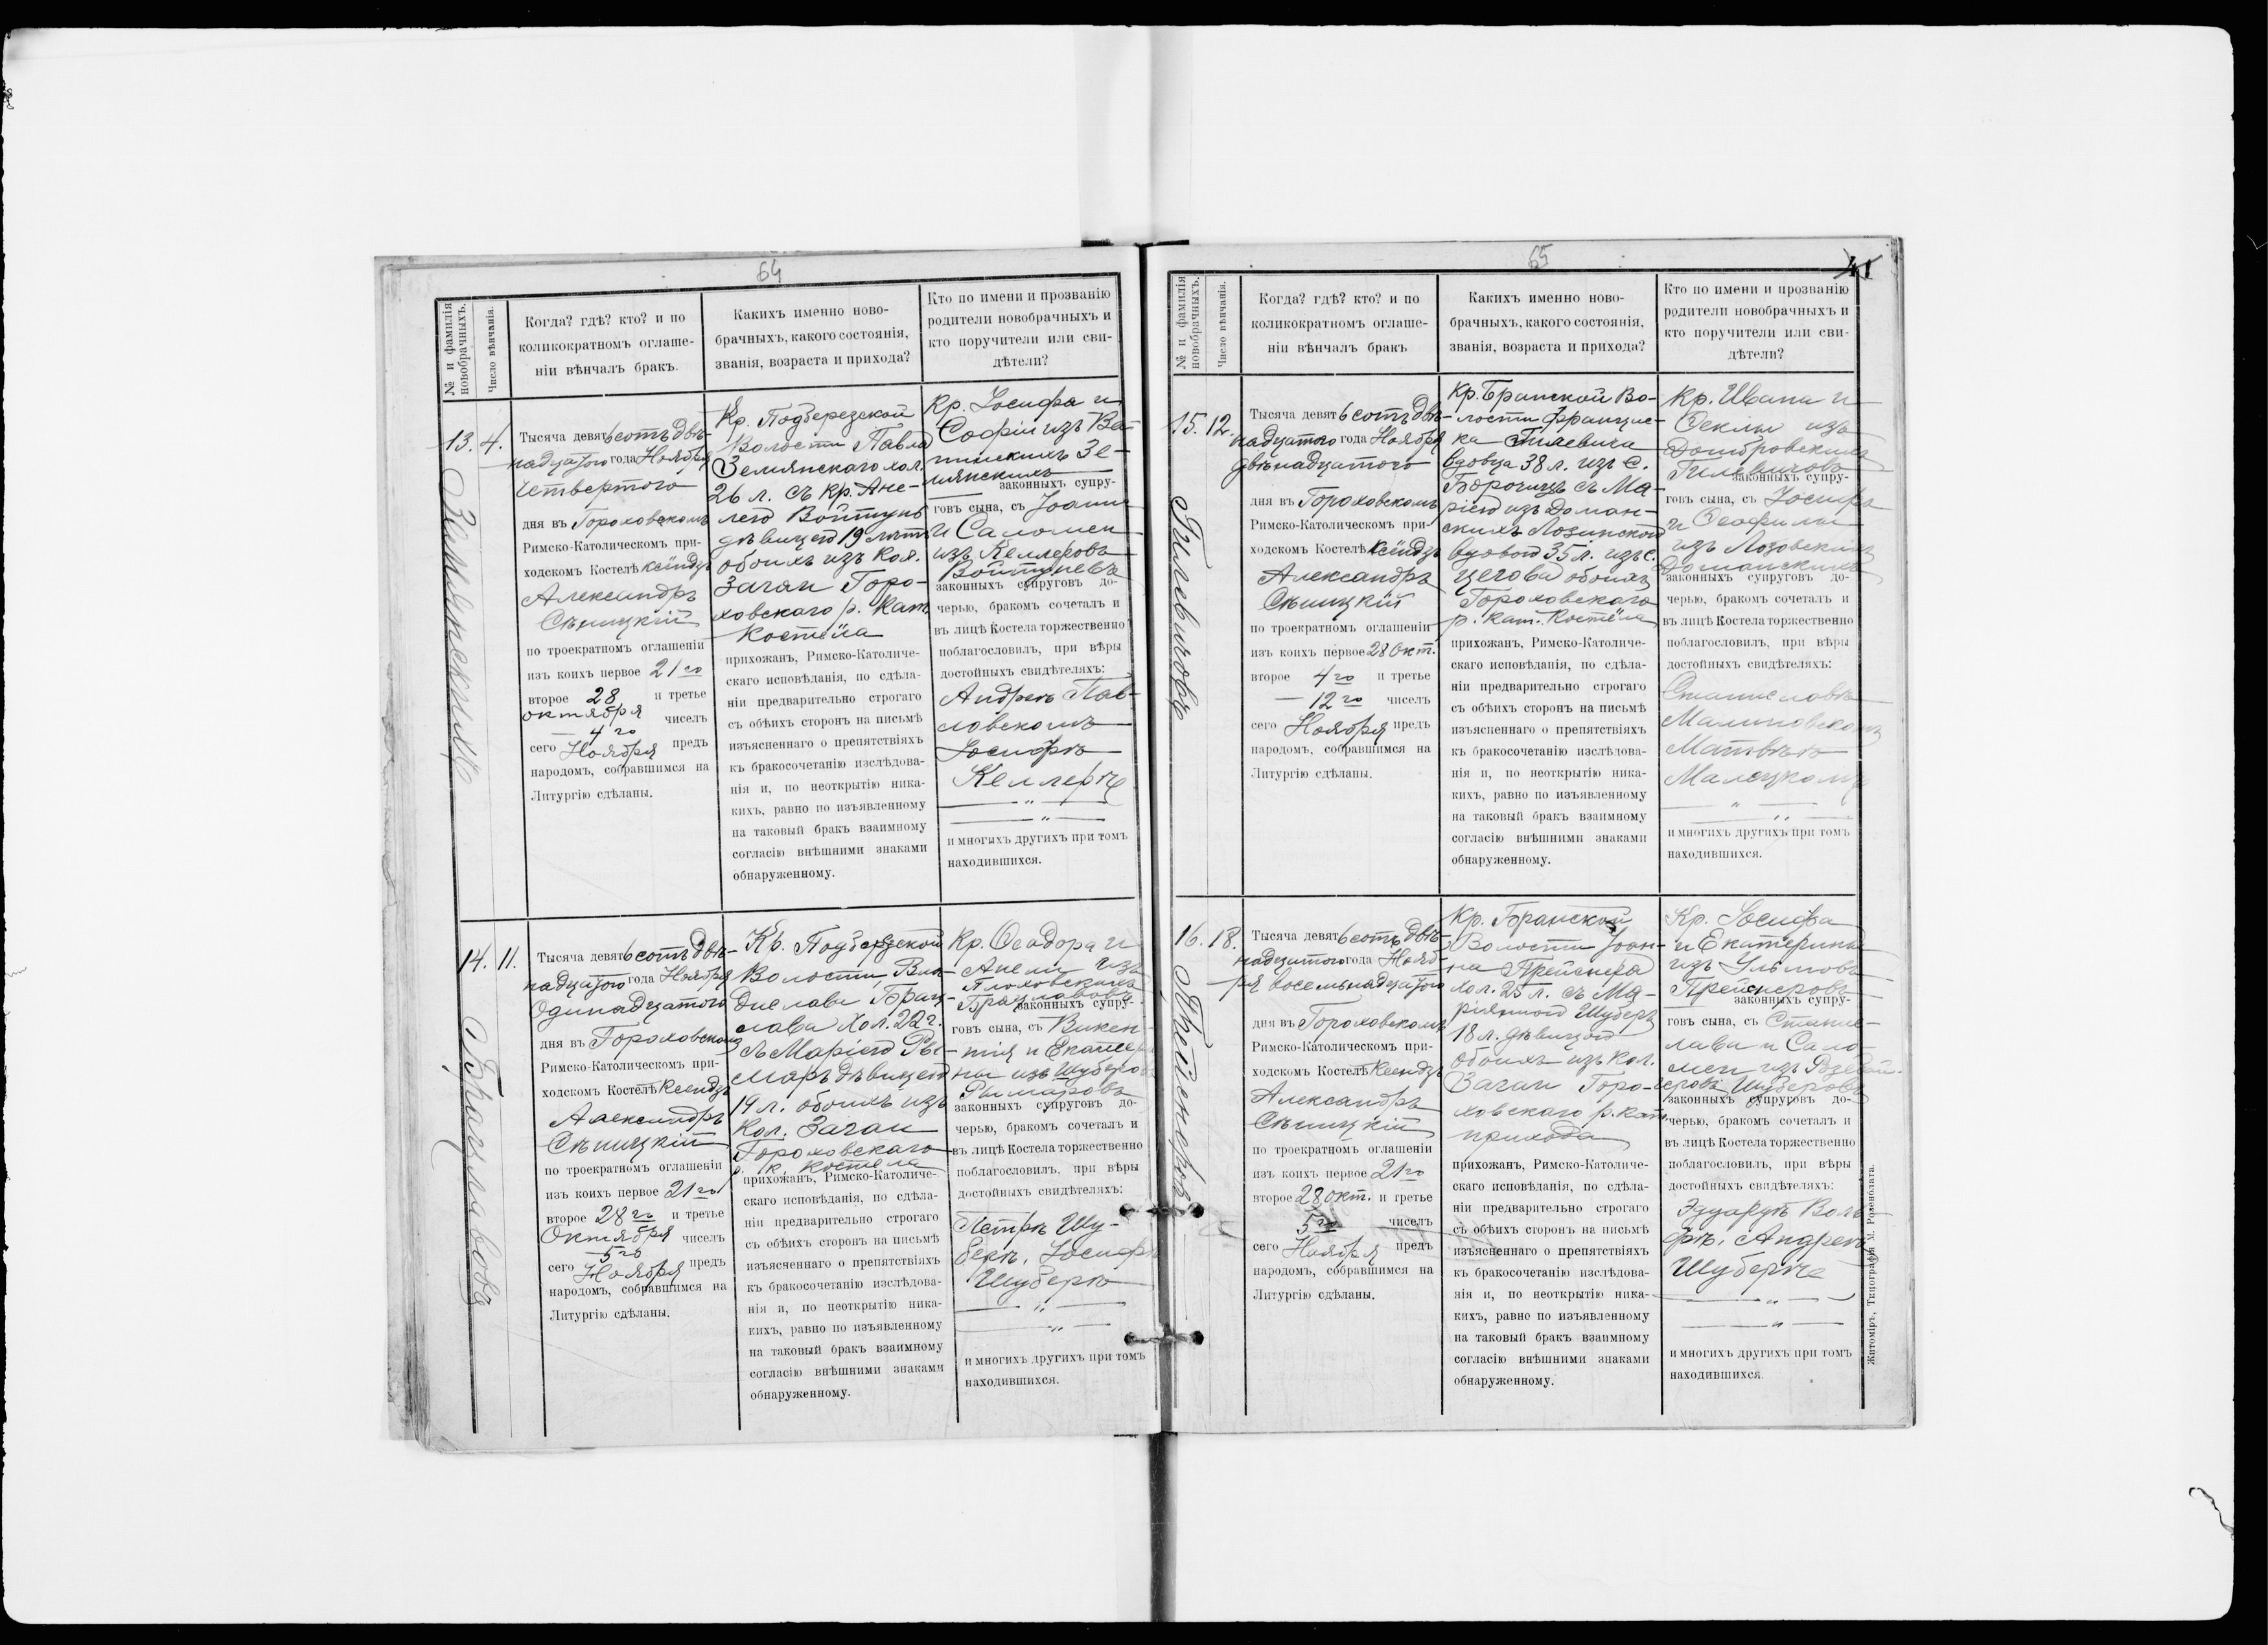 64
№ и фамилія новобрачныхъ.
Число вѣнчанія.
Когда? гдѣ? кто? и по
коликократномъ оглаше-
ніи вѣнчалъ бракъ.
Какихъ именно ново-
брачныхъ, какого состоянія,
званія, возраста и прихода?
Кто по имени и прозванію
родители новобрачныхъ и
кто поручители или сви-
дѣтели?
13. 4.
Землянскимъ
Тысяча девятьсотъ двѣ-
надцатого года Ноября
Четвертого
дня въ Гороховскомъ
Римско-Католическомъ при-
ходскомъ Костелѣ Ксіндзъ
Александръ
Сѣницкій
по троекратномъ оглашеніи
изъ коихъ первое 21го
второе 28 и третье
октября чиселъ
4го
сего Ноября предъ
народомъ, собравшимся на
Литургію сдѣланы.
Кр. Подберезской
Волости Павла
Землянскаго хол.
26 л. съ кр. Ане-
лею Войтунъ
дѣвицею 19 лѣтъ
обоихъ изъ Кол.
Загаи Горо-
ховскаго р. Кат.
Костёла
прихожанъ, Римско-Католиче-
скаго исповѣданія, по сдѣла-
ніи предварительно строгаго
съ обѣихъ сторонъ на письмѣ
изъясненнаго о препятствіяхъ
къ бракосочетанію изслѣдова-
нія и, по неоткрытію ника-
кихъ, равно по изъявленному
на таковый бракъ взаимному
согласію внѣшними знаками
обнаруженному.
Кр. Іосифа и
Софіи изъ
Зе-
млянскихъ
законныхъ супру-
говъ сына, съ Іоанна
и Саломеи
изъ Келлеровъ
Войтуневъ
законныхъ супруговъ до-
черью, бракомъ сочеталъ и
въ лицѣ Костела торжественно
поблагословилъ, при вѣры
достойныхъ свидѣтеляхъ:
Андреѣ Пав-
ловскомъ
Іосифѣ
Келлерѣ
и многихъ другихъ при томъ
находившихся.
14. 11.
Брацлавовъ
Тысяча девятьсотъ двѣ-
надцатого года Ноября
Одинадцатого
дня въ Гороховскомъ
Римско-Католическомъ при-
ходскомъ Костелѣ Ксендзъ
Александръ
Сѣницкій
по троекратномъ оглашеніи
изъ коихъ первое 21го
второе 28го и третье
Октября чиселъ
5го
сего Ноября предъ
народомъ, собравшимся на
Литургію сдѣланы.
Кр. Подберезской
Волости, Вла-
дислава Брац-
лава Хол. 22 г.
съ Маріею Ры-
маръ дѣвицею
19 л. обоихъ изъ
Кол. Загаи
Гороховскаго
р. к. Костела
прихожанъ, Римско-Католиче-
скаго исповѣданія, по сдѣла-
ніи предварительно строгаго
съ обѣихъ сторонъ на письмѣ
изъясненнаго о препятствіяхъ
къ бракосочетанію изслѣдова-
нія и, по неоткрытію ника-
кихъ, равно по изъявленному
на таковый бракъ взаимному
согласію внѣшними знаками
обнаруженному.
Кр. Ѳеодора и
Анели изъ
Брацлавовъ
законныхъ супру-
говъ сына, съ Викен-
тія и Екатери-
ны изъ Шуберовъ
Рымаровъ
законныхъ супруговъ до-
черью, бракомъ сочеталъ и
въ лицѣ Костела торжественно
поблагословилъ, при вѣры
достойныхъ свидѣтеляхъ:
Петрѣ Шу-
берѣ, Іосифѣ
Шуберѣ
и многихъ другихъ при томъ
находившихся.
65
41
№ и фамилія новобрачныхъ.
Число вѣнчанія.
Когда? гдѣ? кто? и по
коликократномъ оглаше-
ніи вѣнчалъ бракъ
Какихъ именно ново-
брачныхъ, какого состоянія,
званія, возраста и прихода?
Кто по имени и прозванію
родители новобрачныхъ и
кто поручители или сви-
дѣтели?
15. 12.
Гилевичовъ
Тысяча девятьсотъ двѣ-
надцатого года Ноября
двѣнадцатого
дня въ Гороховскомъ
Римско-Католическомъ при-
ходскомъ Костелѣ Ксіндзъ
Александръ
Сѣницкій
по троекратномъ оглашеніи
изъ коихъ первое 28 окт.
второе 4го и третье
12го чиселъ
сего Ноября предъ
народомъ, собравшимся на
Литургію сдѣланы.
Кр. Бранской Во-
лости Францис-
ка Гилевича
вдовца 38 л. изъ с.
Борочичъ съ Ма-
ріею изъ Доман-
скихъ Лозинскою
вдовою 35 л. изъ с.
Цегова обоихъ
Гороховскаго
р. кат. Костёла
прихожанъ, Римско-Католиче-
скаго исповѣданія, по сдѣла-
ніи предварительно строгаго
съ обѣихъ сторонъ на письмѣ
изъясненнаго о препятствіяхъ
къ бракосочетанію изслѣдова-
нія и, по неоткрытію ника-
кихъ, равно по изъявленному
на таковый бракъ взаимному
согласію внѣшними знаками
обнаруженному.
Кр. Ивана и
Ѳеклы изъ
Домбровскихъ
Гилевичовъ
законныхъ супру-
говъ сына, съ Іосифа
и Ѳеофилы
изъ Лозовскихъ
Доманскихъ
законныхъ супруговъ до-
черью, бракомъ сочеталъ и
въ лицѣ Костела торжественно
поблагословилъ, при вѣры
достойныхъ свидѣтеляхъ:
Станиславѣ
Малиновскомъ
Матвѣѣ
Малецкомъ
и многихъ другихъ при томъ
находившихся.
16. 18.
Прейснеровъ
Тысяча девятьсотъ двѣ-
надцатого года Нояб-
ря восемьнадцатого
дня въ Гороховскомъ
Римско-Католическомъ при-
ходскомъ Костелѣ Ксендзъ
Александръ
Сѣницкій
по троекратномъ оглашеніи
изъ коихъ первое 21го
второе 28 окт. и третье
5го чиселъ
сего Ноября предъ
народомъ, собравшимся на
Литургію сдѣланы.
Кр. Бранской
Волости Іоан-
на Прейснера
хол. 25 л. съ Ма-
ріянною Шуберъ
18 л. дѣвицею
обоихъ изъ Кол.
Загаи Горо-
ховскаго р. кат.
прихода
прихожанъ, Римско-Католиче-
скаго исповѣданія, по сдѣла-
ніи предварительно строгаго
съ обѣихъ сторонъ на письмѣ
изъясненнаго о препятствіяхъ
къ бракосочетанію изслѣдова-
нія и, по неоткрытію ника-
кихъ, равно по изъявленному
на таковый бракъ взаимному
согласію внѣшними знаками
обнаруженному.
Кр. Іосифа
и Екатерины
изъ Ульмовъ
Прейснеровъ
законныхъ супру-
говъ сына, съ Станис-
лава и Сало-
меи изъ
Шуберовъ
законныхъ супруговъ до-
черью, бракомъ сочеталъ и
въ лицѣ Костела торжественно
поблагословилъ, при вѣры
достойныхъ свидѣтеляхъ:
Эдуардѣ Воль-
фѣ, Андреѣ
Шуберѣ
и многихъ другихъ при томъ
находившихся.
Житоміръ, Типографія М. Розенблата.